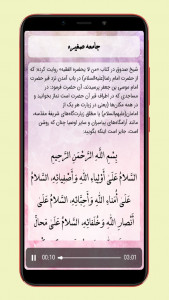 جامعه صغیره
شیخ صدوق در کتاب «من لا یحضره الفقیه» روایت کرده که
از حضرت امام رضا(علیه‌السلام) در باب آمدن نزد قبر حضرت
امام موسی بن جعفر پرسیدند، آن حضرت فرمود: در
مساجدی که در اطراف قبر آن حضرت است نماز بخوانید و
در همه مکان‌ها (یعنی در زیارت هر یک از
امامان(علیهم‌السلام) یا مطلق زیارتگاه‌های شریفۀ مقدسه،
مانند: آرامگاه‌های پیامبران و سایر اوصیا چنان که روشن
است، جایز است اینکه بگویید:
بِسْمِ اللَّهِ الرَّحْمَنِ الرَّحِیمِ
السَّلامُ عَلَى أَوْلِیَاءِ اللَّهِ وَ أَصْفِیَائِهِ، السَّلامُ
عَلَى أُمَنَاءِ اللَّهِ وَ أَحِبَّائِهِ، السَّلامُ عَلَى
أَنْصَارِ اللَّهِ وَ خُلَفَائِهِ، السَّلامُ عَلَى مَحَالِّ
00:10
03:01